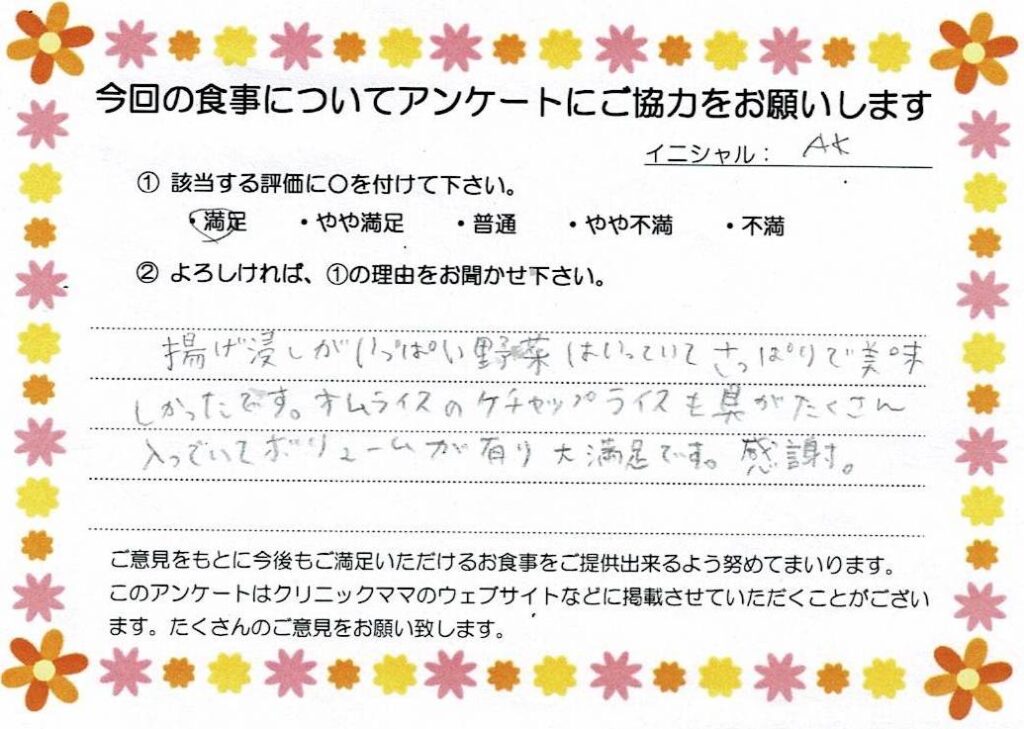 今回の食事についてアンケートにご協力をお願いします
イニシャル： AK
① 該当する評価に〇を付けて下さい。
・満足 ・やや満足 ・普通 ・やや不満 ・不満
② よろしければ、①の理由をお聞かせ下さい。
揚げ浸しがいっぱい野菜はいっていてさっぱりで美味
しかったです。オムライスのケチャップライスも具がたくさん
入っでいてボリュームが有り大満足です。感謝。
ご意見をもとに今後もご満足いただけるお食事をご提供出来るよう努めてまいります。
このアンケートはクリニックママのウェブサイトなどに掲載させていただくことがござい
ます。たくさんのご意見をお願い致します。